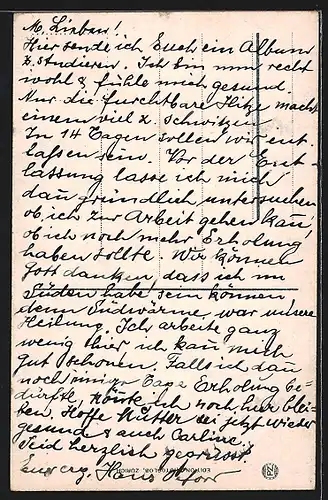 M. Lieben!
Hier sende ich Euch ein Album
z. studieren. Ich bin nun recht
wohl & fühle mich gesund.
Nur die furchtbare Hitze macht
einem viel z. schwitzen.
In 14 Tagen sollen wir ent-
lassen sein. Vor der Ent-
lassung lasse ich mich
dan gründlich untersuchen
ob ich zur Arbeit gehen kan!
ob ich noch mehr Erholung
haben sollte. Wir können
Gott danken, dass ich im
Süden habe sein können
denn Südwärme war unsere
Heilung. Ich arbeite ganz
wenig hier ich kan mich
gut schonen. Falls ich dan
noch einige Tage Erholung be-
dürfte, könte ich noch hier blei-
ben. Hoffe Mutter sei jetzt wieder
gesund & auch Carline.
Seid herzlich gegrüsst
Euer Hans
EDITION PHOTOGLOB, ZÜRICH